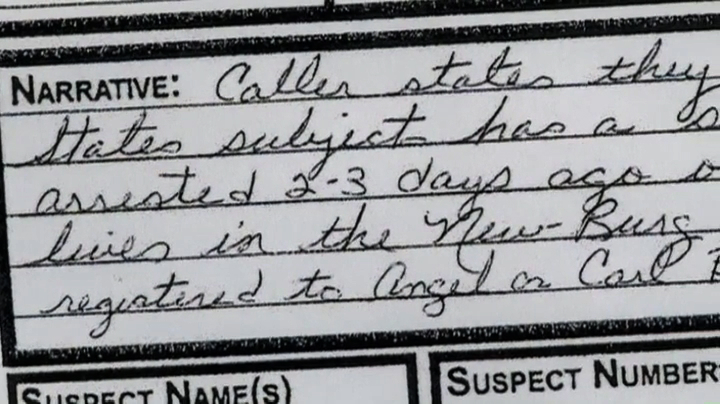 NARRATIVE: Caller states they
States subject has a s
arrested 2-3 days ago o
lives in the New-Burg
registered to Angel or Carl
SUSPECT NAME(S)
SUSPECT NUMBER